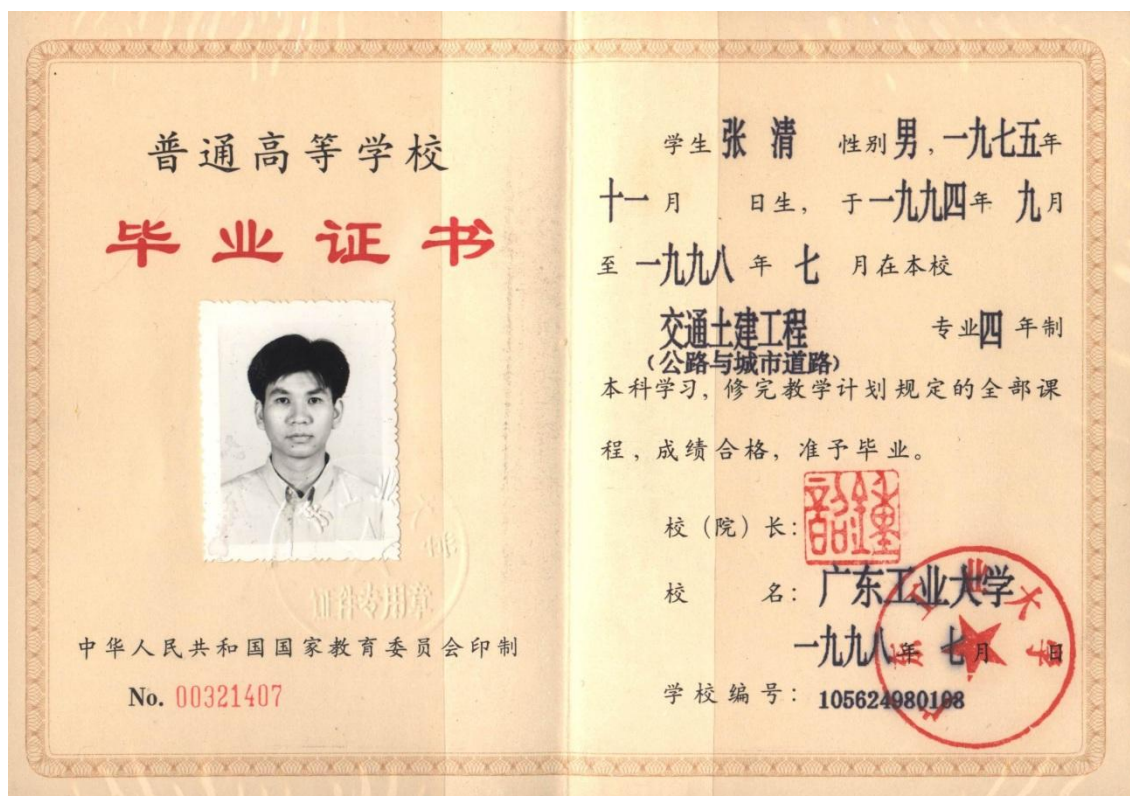 普通高等学校
毕业证书
证件专用章
中华人民共和国国家教育委员会印制
No. 00321407
学生 张清 性别 男，一九七五年
十一月 日生，于一九九四年 九月
至 一九九八 年 七 月在本校
交通土建工程 专业四年制
（公路与城市道路）
本科学习，修完教学计划规定的全部课
程，成绩合格，准予毕业。
校（院）长：
校 名：广东工业大学
一九九八年 七月 日
学校编号：105624980108
广东工业大学